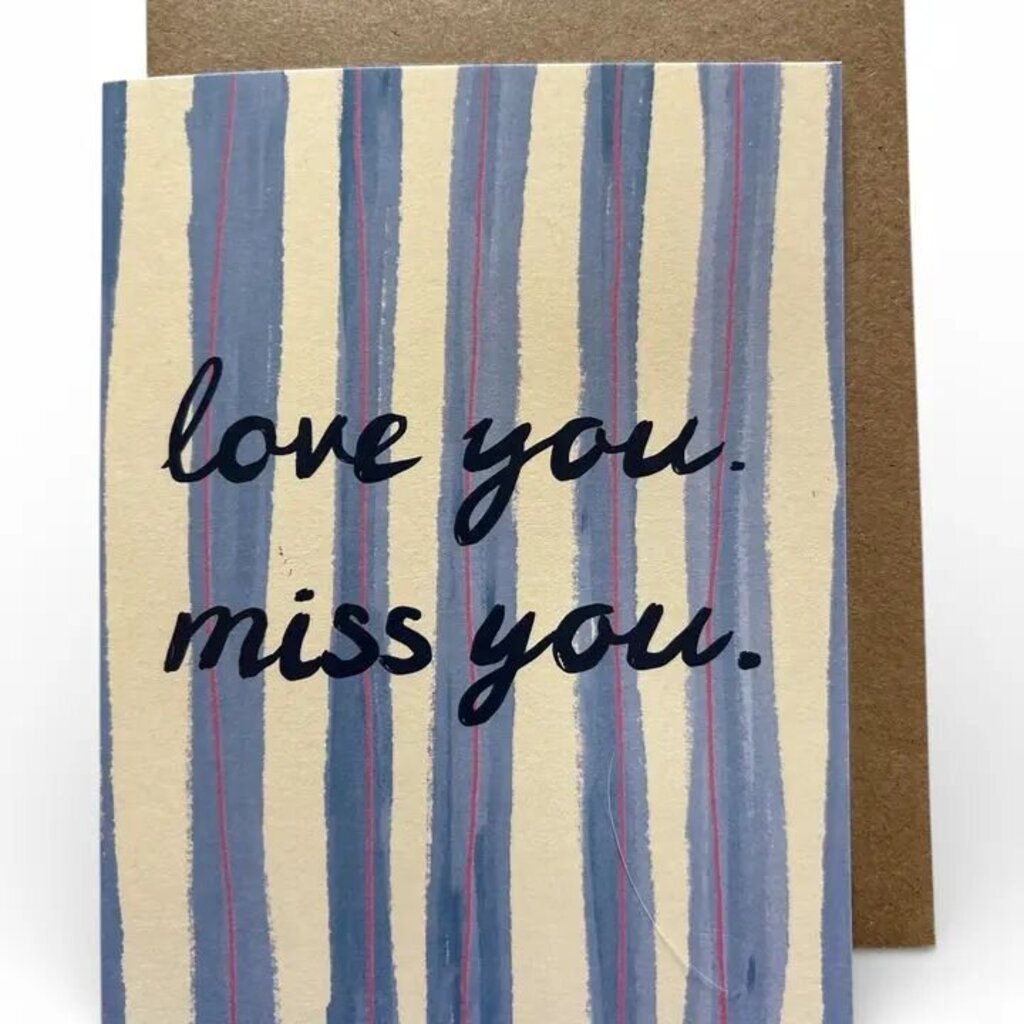 love you.
miss you.